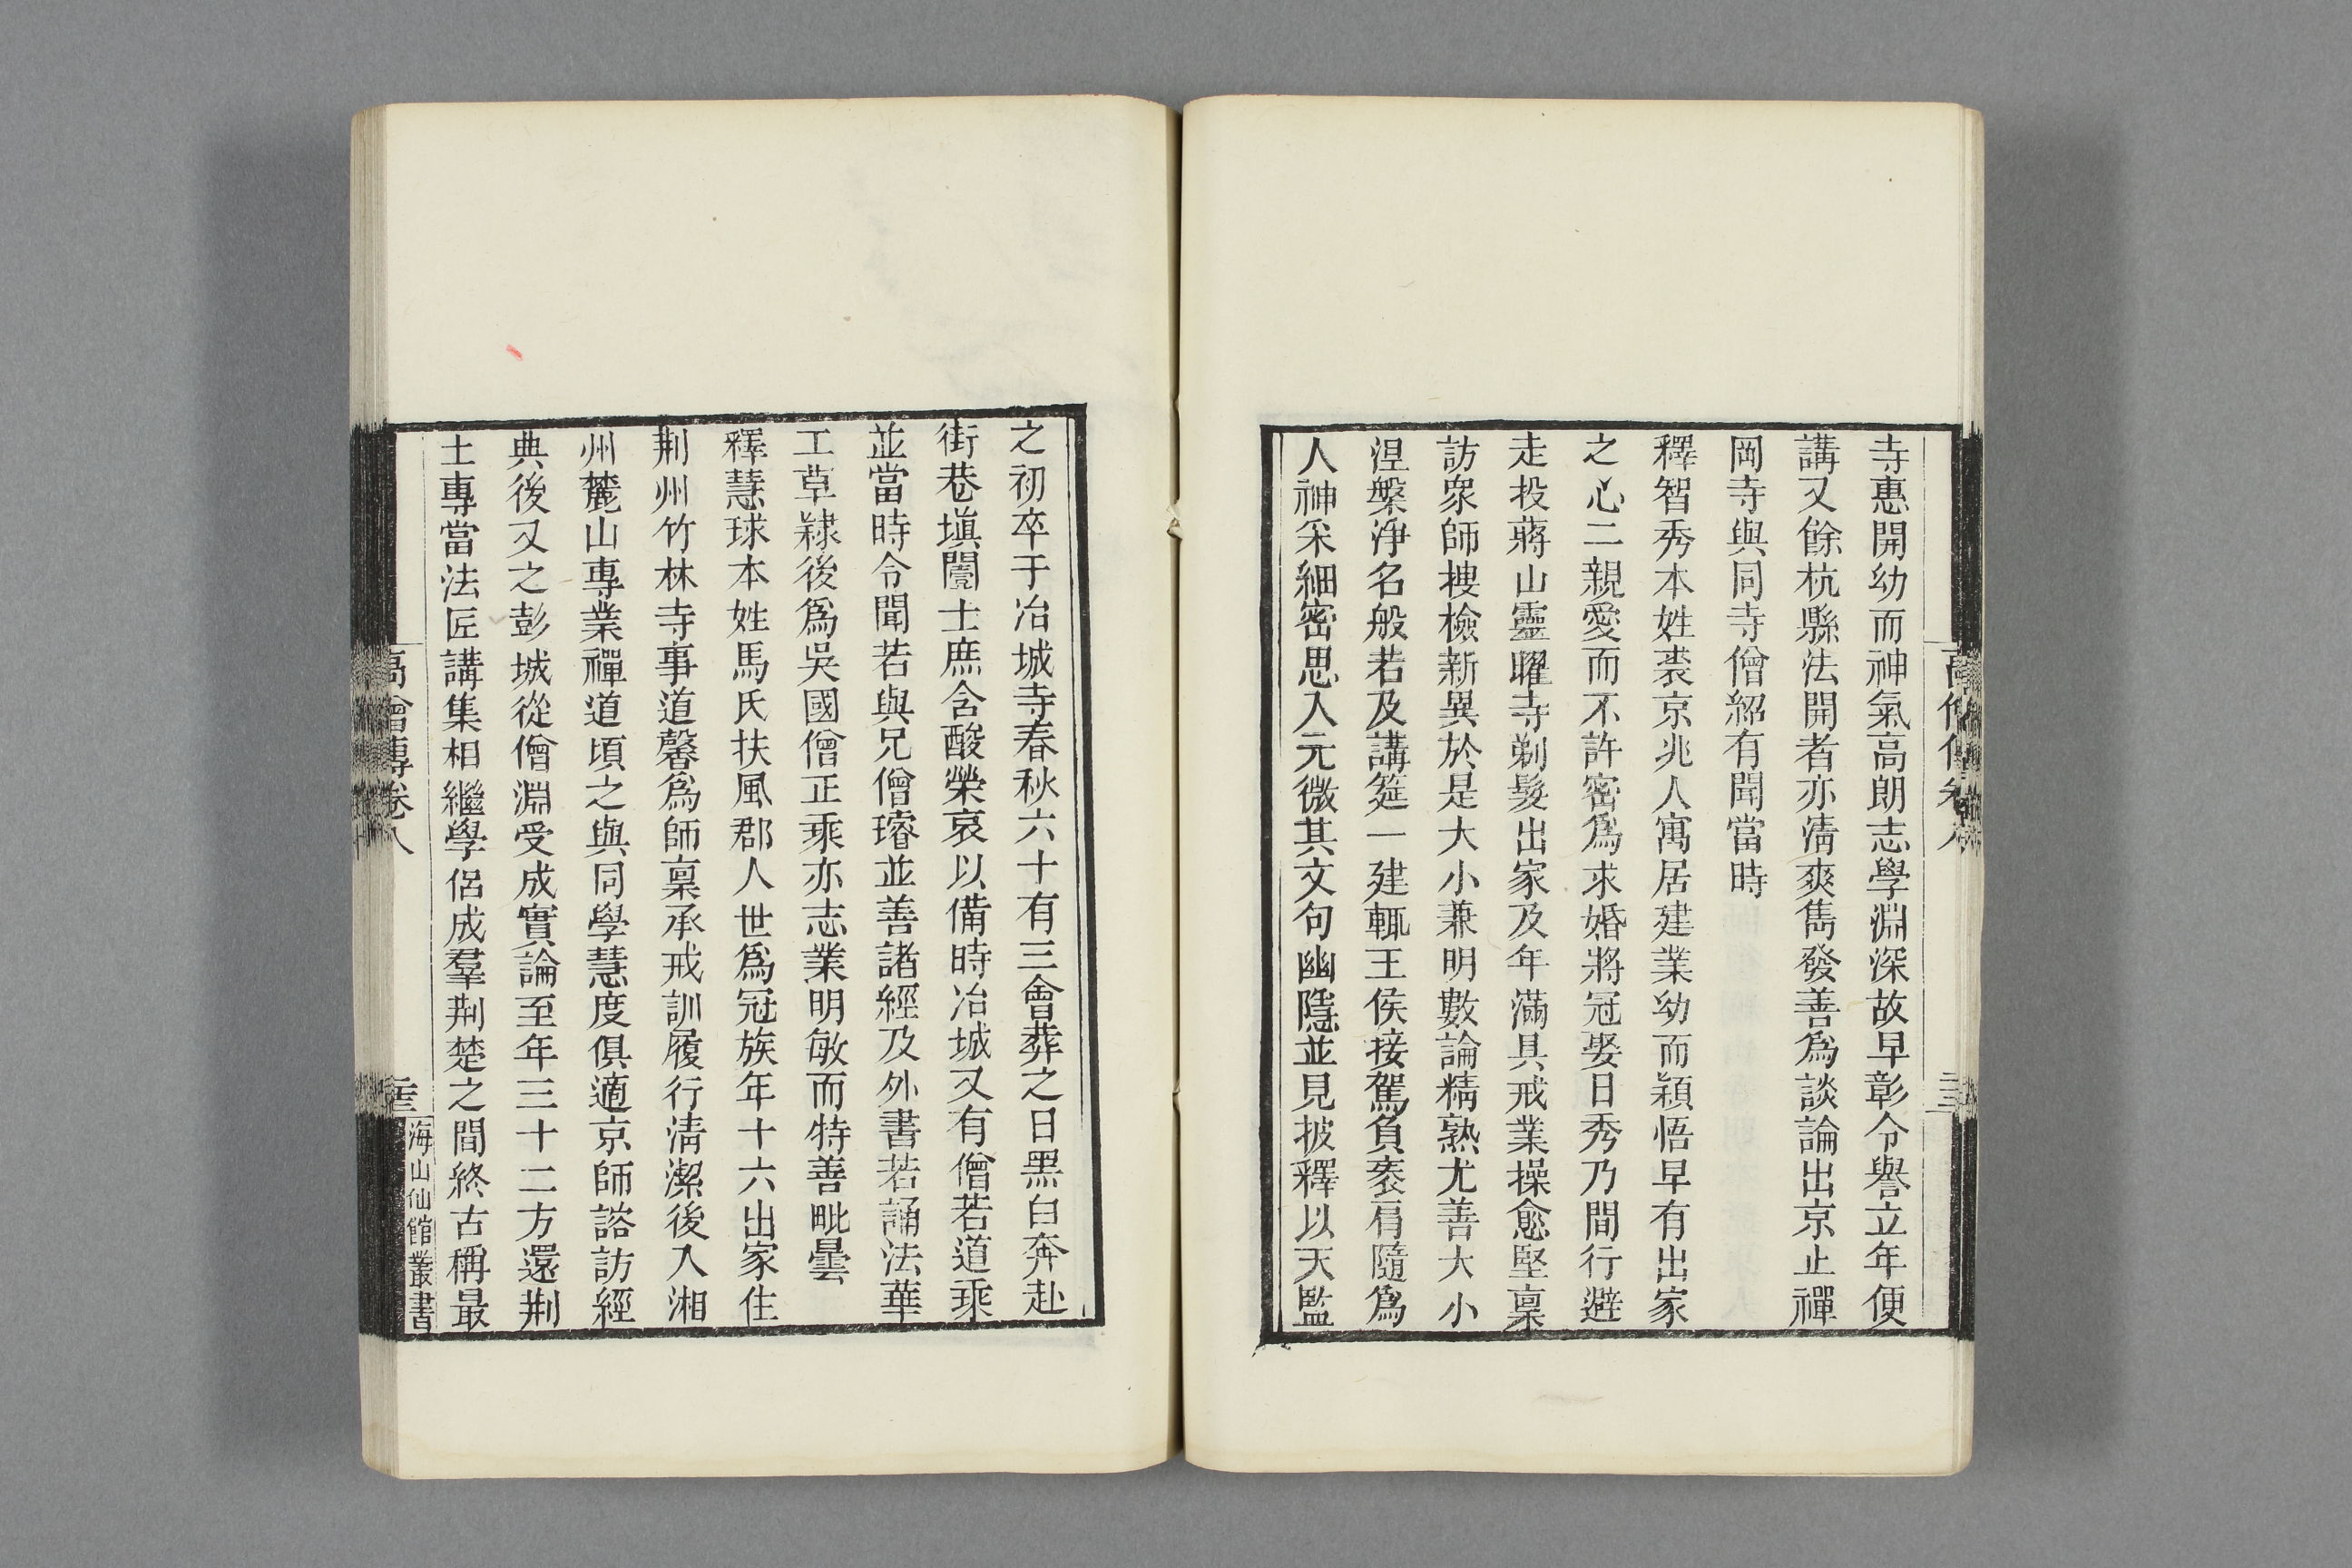 寺惠開幼而神氣高朗志學淵深故早彰令譽立年便
講又餘杭縣法開者亦清爽雋發善爲談論出京止禪
岡寺與同寺僧紹有聞當時
釋智秀本姓裘京兆人寓居建業幼而穎悟早有出家
之心二親愛而不許密爲求婚將冠娶日秀乃間行避
走投蔣山靈曜寺剃髮出家及年滿具戒業操愈堅稟
訪衆師搜檢新異於是大小兼明數論精熟尤善大小
涅槃淨名般若及講筵一建輒王侯接駕負袠肩隨爲
人神采細密思入元微其文句幽隱並見披釋以天監
之初卒于冶城寺春秋六十有三會葬之日黑白奔赴
街巷塡闠士庶含酸榮哀以備時冶城又有僧若道乘
並當時令聞若與兄僧璿並善諸經及外書若誦法華
工草隸後爲吳國僧正乘亦志業明敏而特善毗曇
釋慧球本姓馬氏扶風郡人世爲冠族年十六出家住
荆州竹林寺事道馨爲師稟承戒訓履行清潔後入湘
州麓山專業禪道頃之與同學慧度俱適京師諮訪經
典後又之彭城從僧淵受成實論至年三十二方還荆
土專當法匠講集相繼學侶成羣荆楚之間終古稱最
高僧傳卷八
海山仙館叢書